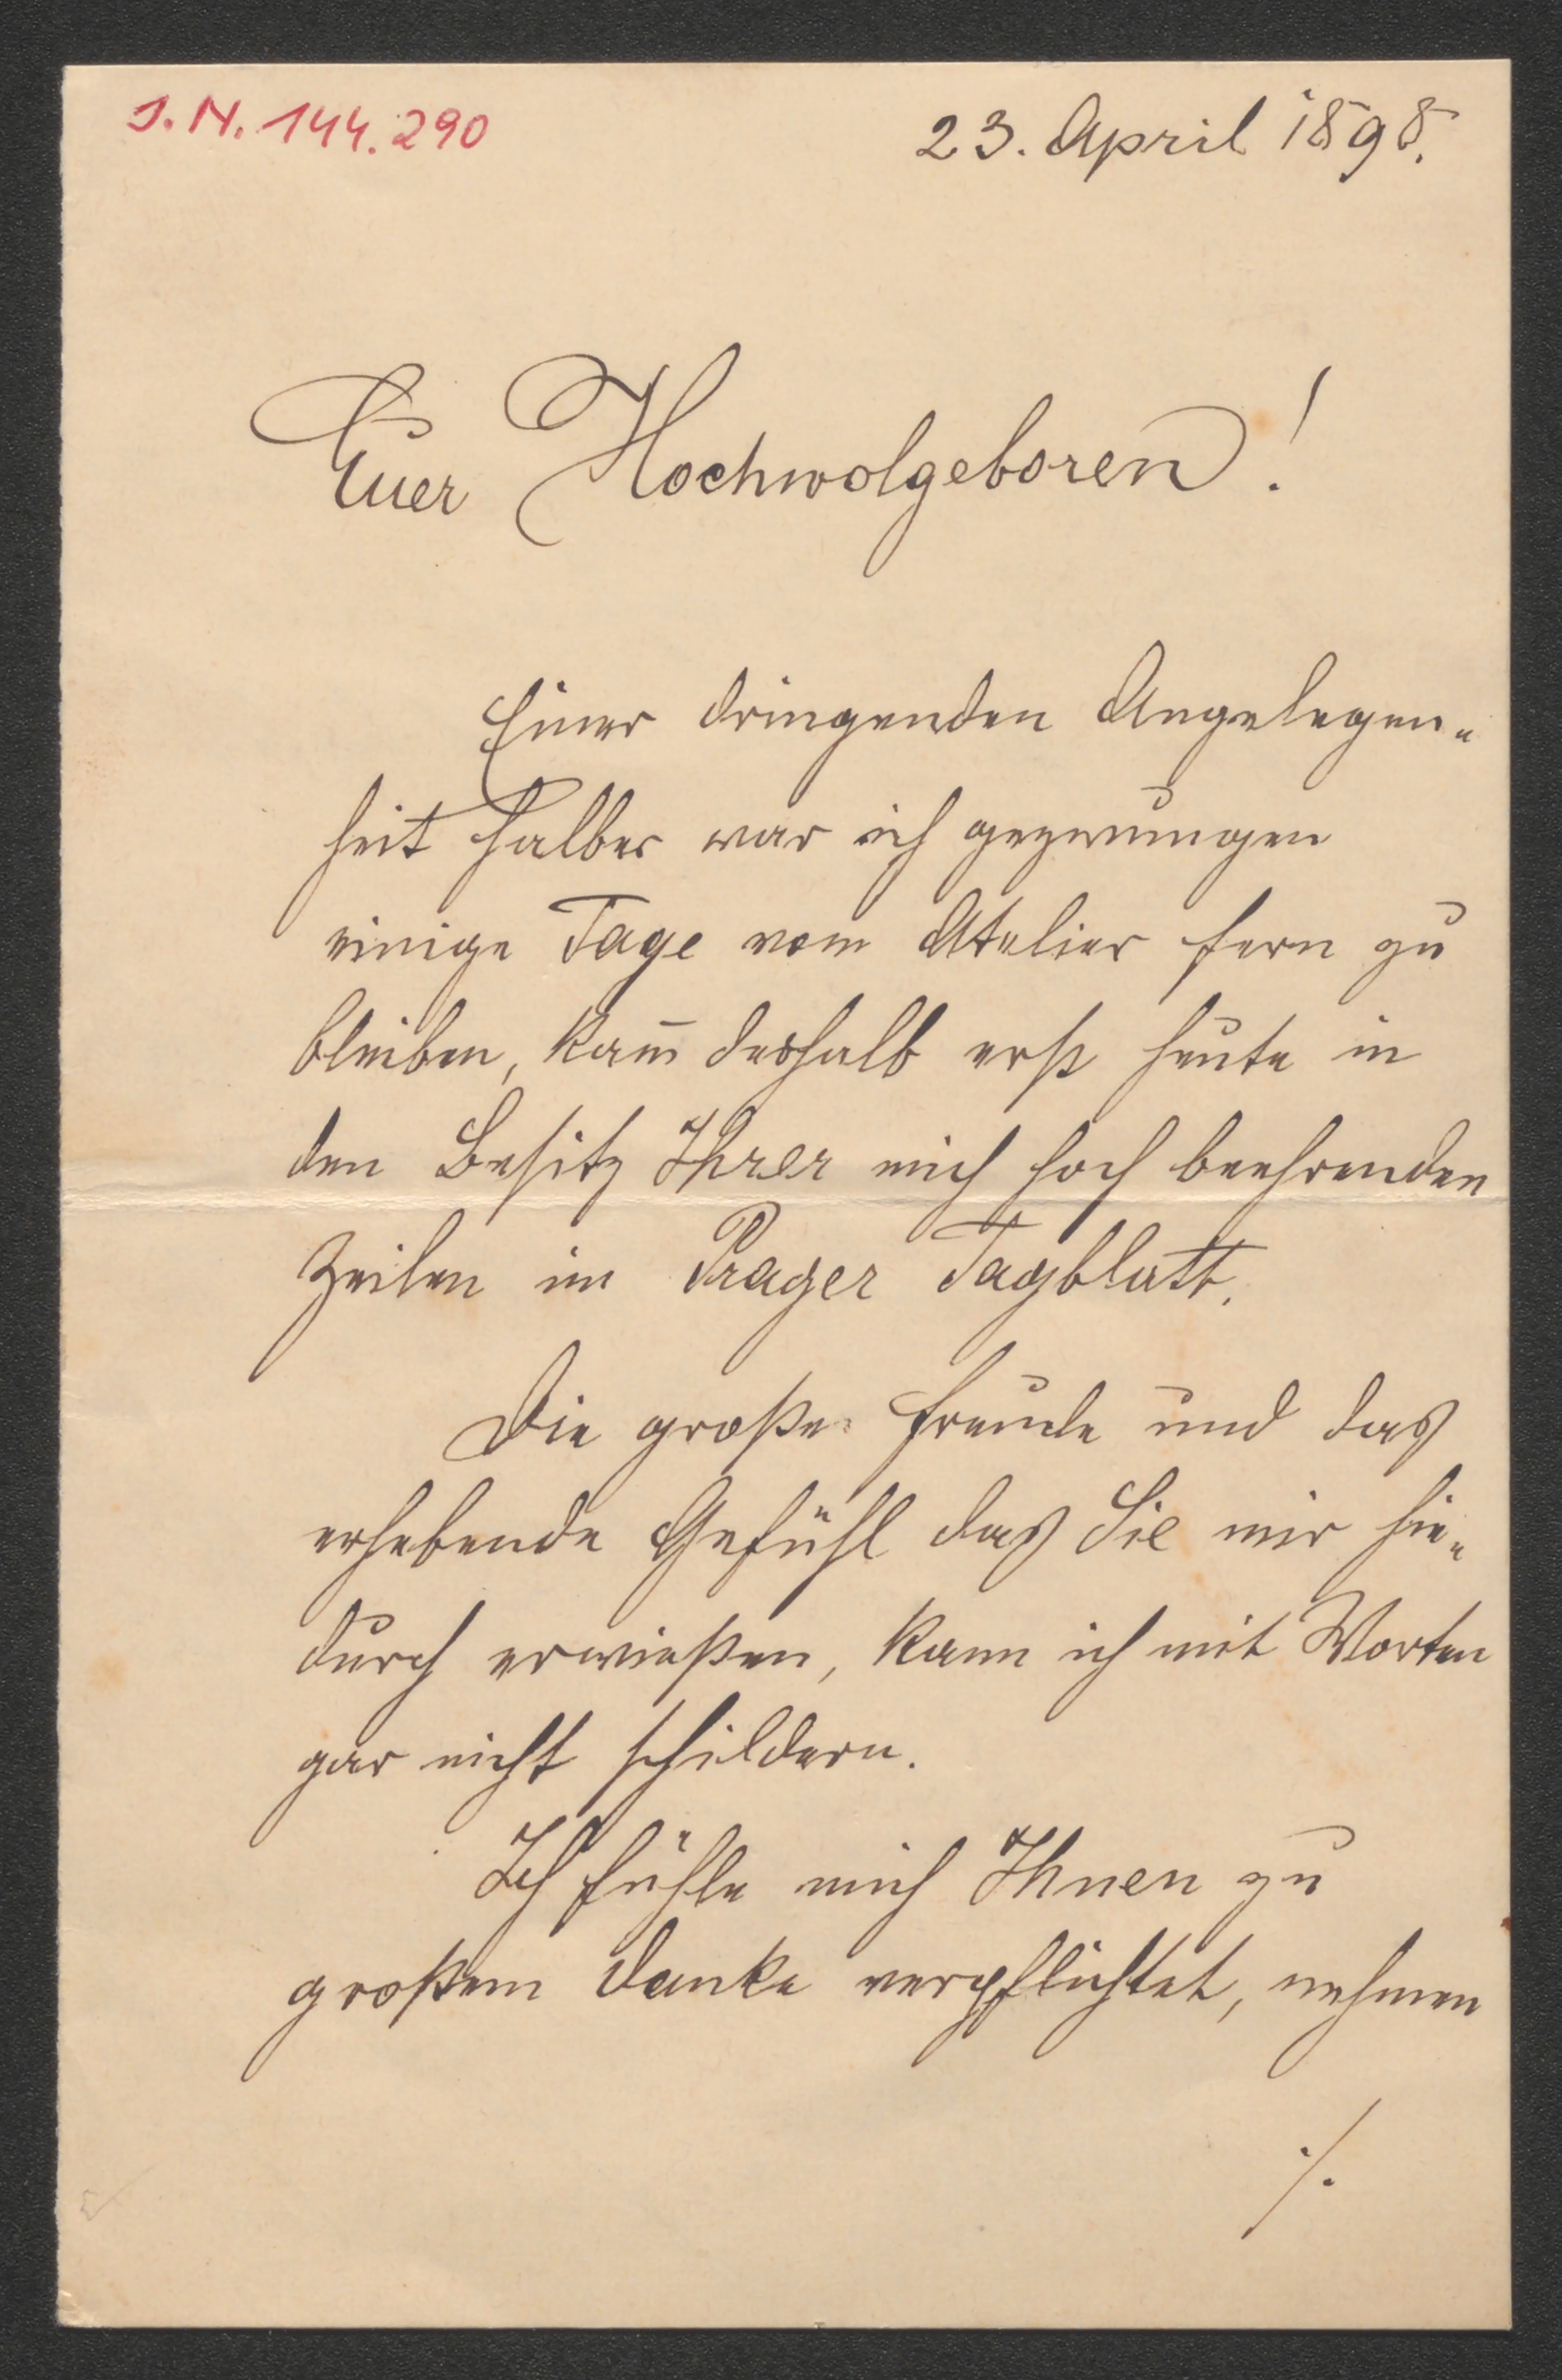 J.N. 144.290
23. April 1898.
Euer Hochwolgeboren!
Einer dringenden Angelegen„
heit halber war ich gezwungen
einige Tage vom Atelier fern zu
bleiben, kam̄ deshalb erst heute in
den Besitz Ihrer mich hoch beehrenden
Zeilen im Prager Tagblatt.
Die große Freude und das
erhebende Gefühl das Sie mir hie„
durch erwießen, kann ich mit Worten
gar nicht schildern.
Ich fühle mich Ihnen zu
großem Danke verpflichtet, nehmen
./.